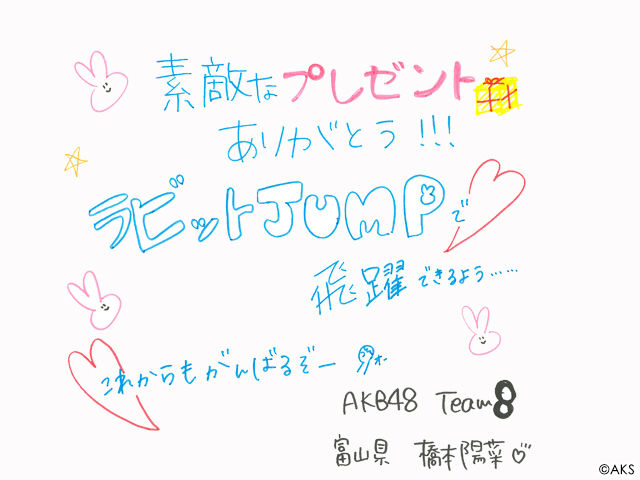 素敵なプレゼント
ありがとう!!!
ラビットJUMPで
飛躍できるよう……
これからもがんばるぞー
オー
AKB48 Team8
富山県 橋本陽菜♡
©AKS